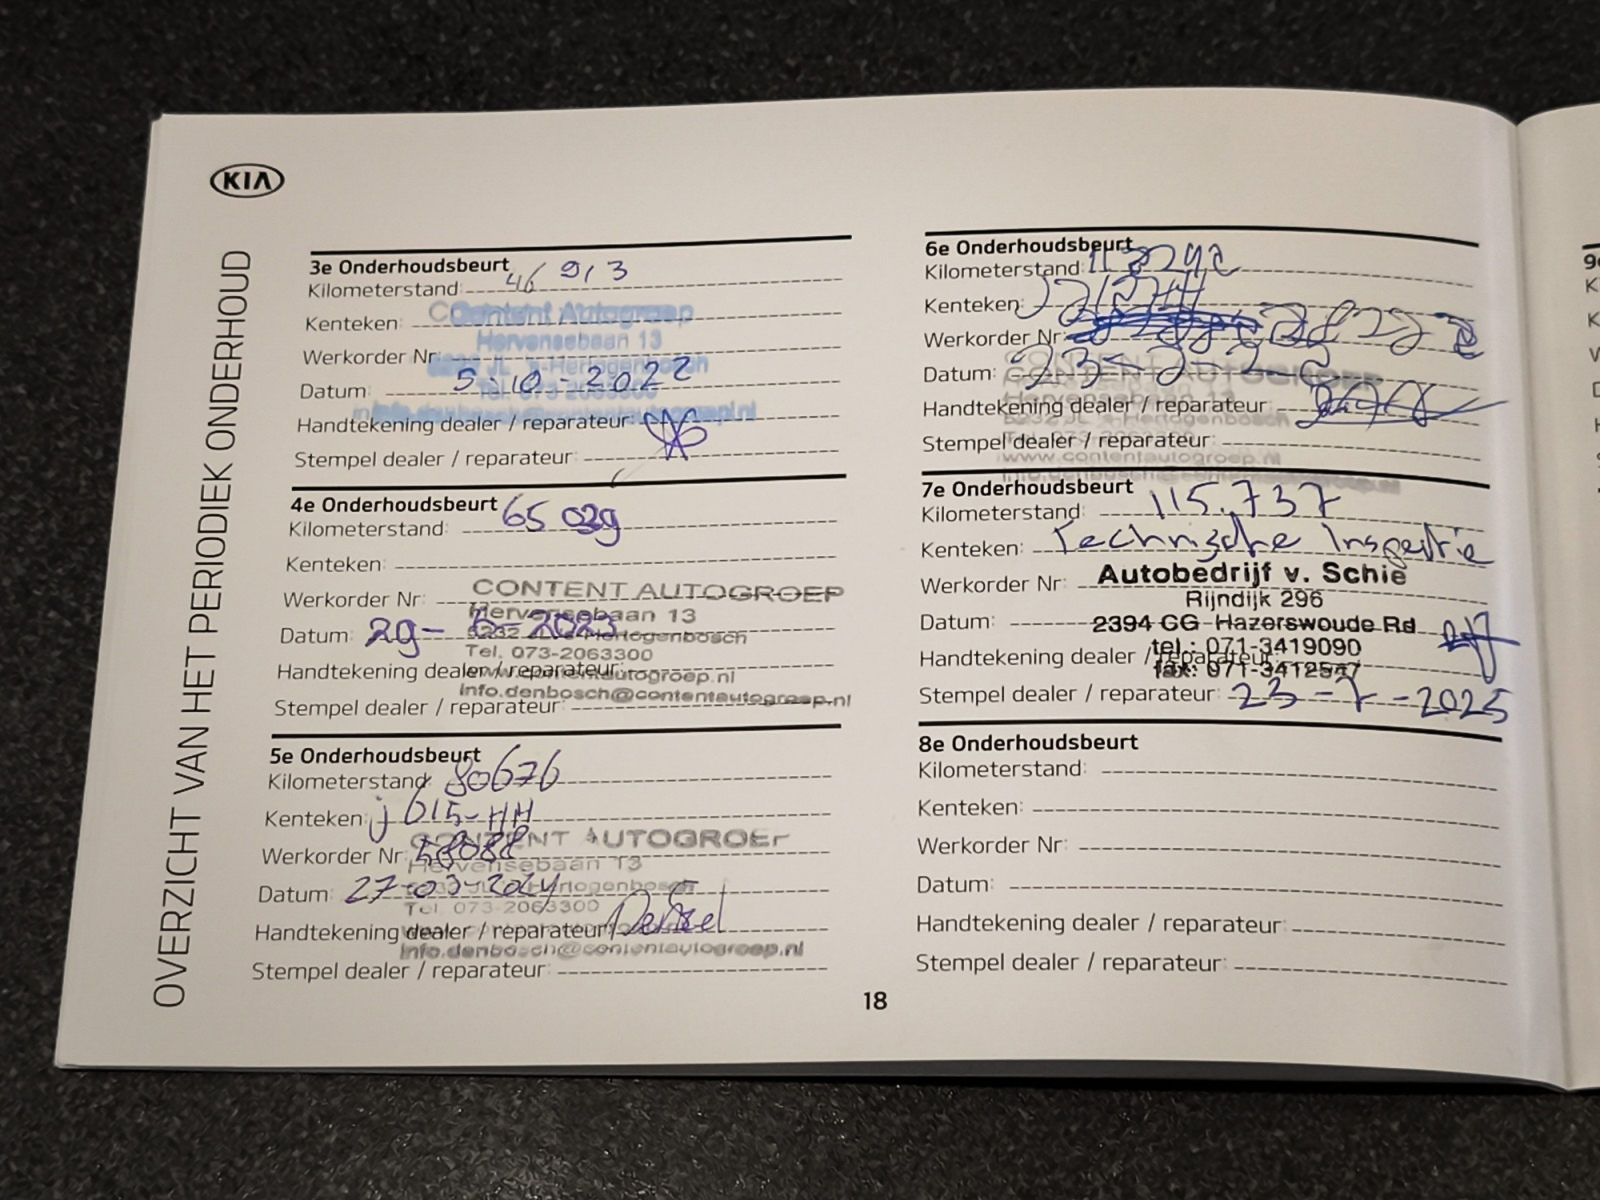 KIA
OVERZICHT VAN HET PERIODIEK ONDERHOUD
3e Onderhoudsbeurt
Kilometerstand: 46 913
Kenteken:
Content Autogroep
Hervensebaan 13
Werkorder Nr
Datum: 5-10-2022
Handtekening dealer / reparateur:
Stempel dealer / reparateur:
4e Onderhoudsbeurt
Kilometerstand: 65 029
Kenteken:
CONTENT AUTOGROEP
Werkorder Nr:
Hervensebaan 13
Datum: 29- -2023
5232 's-Hertogenbosch
Tel. 073-2063300
Handtekening dealer / reparateur:
www.contentautogroep.nl
info.denbosch@contentautogroep.nl
Stempel dealer / reparateur:
5e Onderhoudsbeurt
Kilometerstand: 80676
Kenteken: J 615-HH
CONTENT AUTOGROEP
Werkorder Nr: 58088
Hervensebaan 13
Datum: 27-03-2024
Tel. 073-2063300
Handtekening dealer / reparateur:
info.denbosch@contentautogroep.nl
Stempel dealer / reparateur:
6e Onderhoudsbeurt
Kilometerstand:
Kenteken:
Werkorder Nr:
CONTENT AUTOGROEP
Datum:
Hervensebaan 13
Handtekening dealer / reparateur:
5232 JL 's-Hertogenbosch
Tel. 073-2063300
Stempel dealer / reparateur:
www.contentautogroep.nl
info.denbosch@contentautogroep.nl
7e Onderhoudsbeurt
Kilometerstand: 115.737
Kenteken: Technische Inspectie
Autobedrijf v. Schie
Werkorder Nr:
Rijndijk 296
Datum:
2394 CG Hazerswoude Rd
tel.: 071-3419090
Handtekening dealer / reparateur:
fax: 071-3412547
Stempel dealer / reparateur: 23-7-2025
8e Onderhoudsbeurt
Kilometerstand:
Kenteken:
Werkorder Nr:
Datum:
Handtekening dealer / reparateur:
Stempel dealer / reparateur:
18